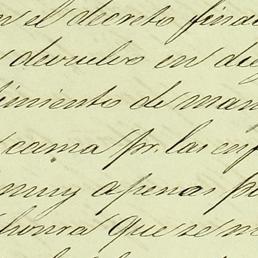 n el decreto finac
devuelvo en dic
limiento de man
cama pr. las enf
muy apenas po
honra que se m